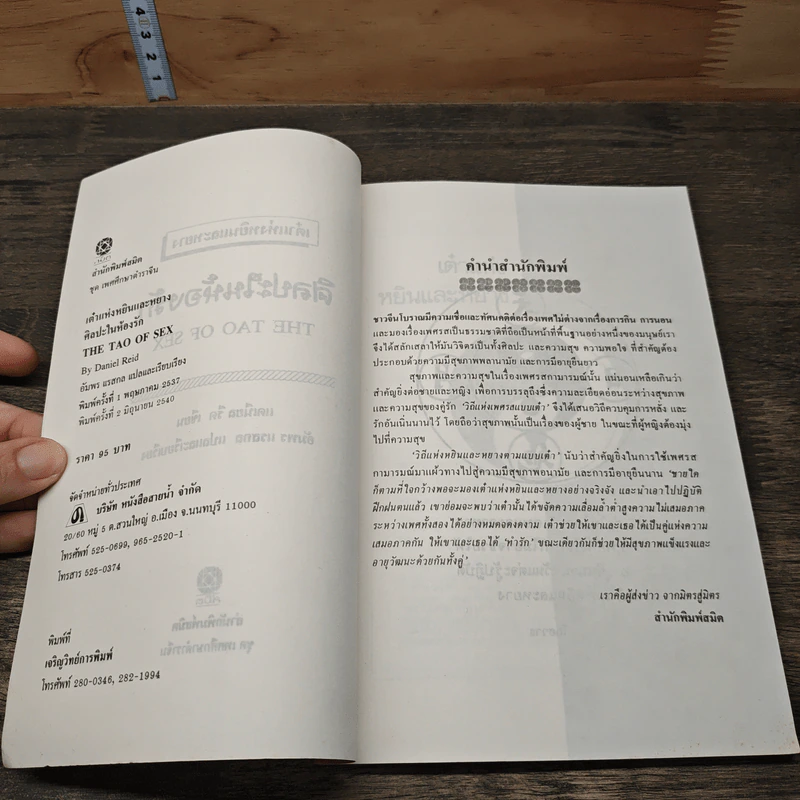 สำนักพิมพ์สมิต
ชุด เพศศึกษาตำราจีน
เต๋าแห่งหยินและหยาง
ศิลปะในห้องรัก
THE TAO OF SEX
By Daniel Reid
อัมพร แรสกล แปลและเรียบเรียง
พิมพ์ครั้งที่ 1 พฤษภาคม 2537
พิมพ์ครั้งที่ 2 มิถุนายน 2540
ราคา 95 บาท
จัดจำหน่ายทั่วประเทศ
บริษัท หนังสือสายน้ำ จำกัด
20/60 หมู่ 5 ต.สวนใหญ่ อ.เมือง จ.นนทบุรี 11000
โทรศัพท์ 525-0699, 965-2520-1
โทรสาร 525-0374
พิมพ์ที่
เจริญวิทย์การพิมพ์
โทรศัพท์ 280-0346, 282-1994
คำนำสำนักพิมพ์
ชาวจีนโบราณมีความเชื่อและทัศนคติต่อเรื่องเพศไม่ต่างจากเรื่องการกิน การนอน
และมองเรื่องเพศรสเป็นธรรมชาติที่ถือเป็นหน้าที่พื้นฐานอย่างหนึ่งของมนุษย์เรา
จึงได้สลักเสลาให้มันวิจิตรเป็นทั้งศิลปะ และความสุข ความพอใจ ที่สำคัญต้อง
ประกอบด้วยความมีสุขภาพพลานามัย และการมีอายุยืนยาว
สุขภาพและความสุขในเรื่องเพศรสกามารมณ์นั้น แน่นอนเหลือเกินว่า
สำคัญยิ่งต่อชายและหญิง เพื่อการบรรลุถึงซึ่งความละเอียดอ่อนระหว่างสุขภาพ
และความสุขของคู่รัก 'วิถีแห่งเพศรสแบบเต๋า' จึงได้เสนอวิถีควบคุมการหลั่ง และ
รักอันเนิ่นนานไว้ โดยถือว่าสุขภาพนั้นเป็นเรื่องของผู้ชาย ในขณะที่ผู้หญิงต้องมุ่ง
ไปที่ความสุข
'วิถีแห่งหยินและหยางตามแบบเต๋า' นับว่าสำคัญยิ่งในการใช้เพศรส
กามารมณ์มาแผ้วทางไปสู่ความมีสุขภาพอนามัย และการมีอายุยืนนาน 'ชายใด
ก็ตามที่ใจกว้างพอจะมองเต๋าแห่งหยินและหยางอย่างจริงจัง และนำเอาไปปฏิบัติ
ฝึกฝนตนแล้ว เขาย่อมจะพบว่าเต๋านั้นได้ขจัดความเลื่อมล้ำต่ำสูงความไม่เสมอภาค
ระหว่างเพศทั้งสองได้อย่างหมดจดงดงาม เต๋าช่วยให้เขาและเธอ ได้เป็นคู่แห่งความ
เสมอภาคกัน ให้เขาและเธอได้ 'ทำรัก' ขณะเดียวกันก็ช่วยให้มีสุขภาพแข็งแรงและ
อายุวัฒนะด้วยกันทั้งคู่'
เราคือผู้ส่งข่าว จากมิตรสู่มิตร
สำนักพิมพ์สมิต